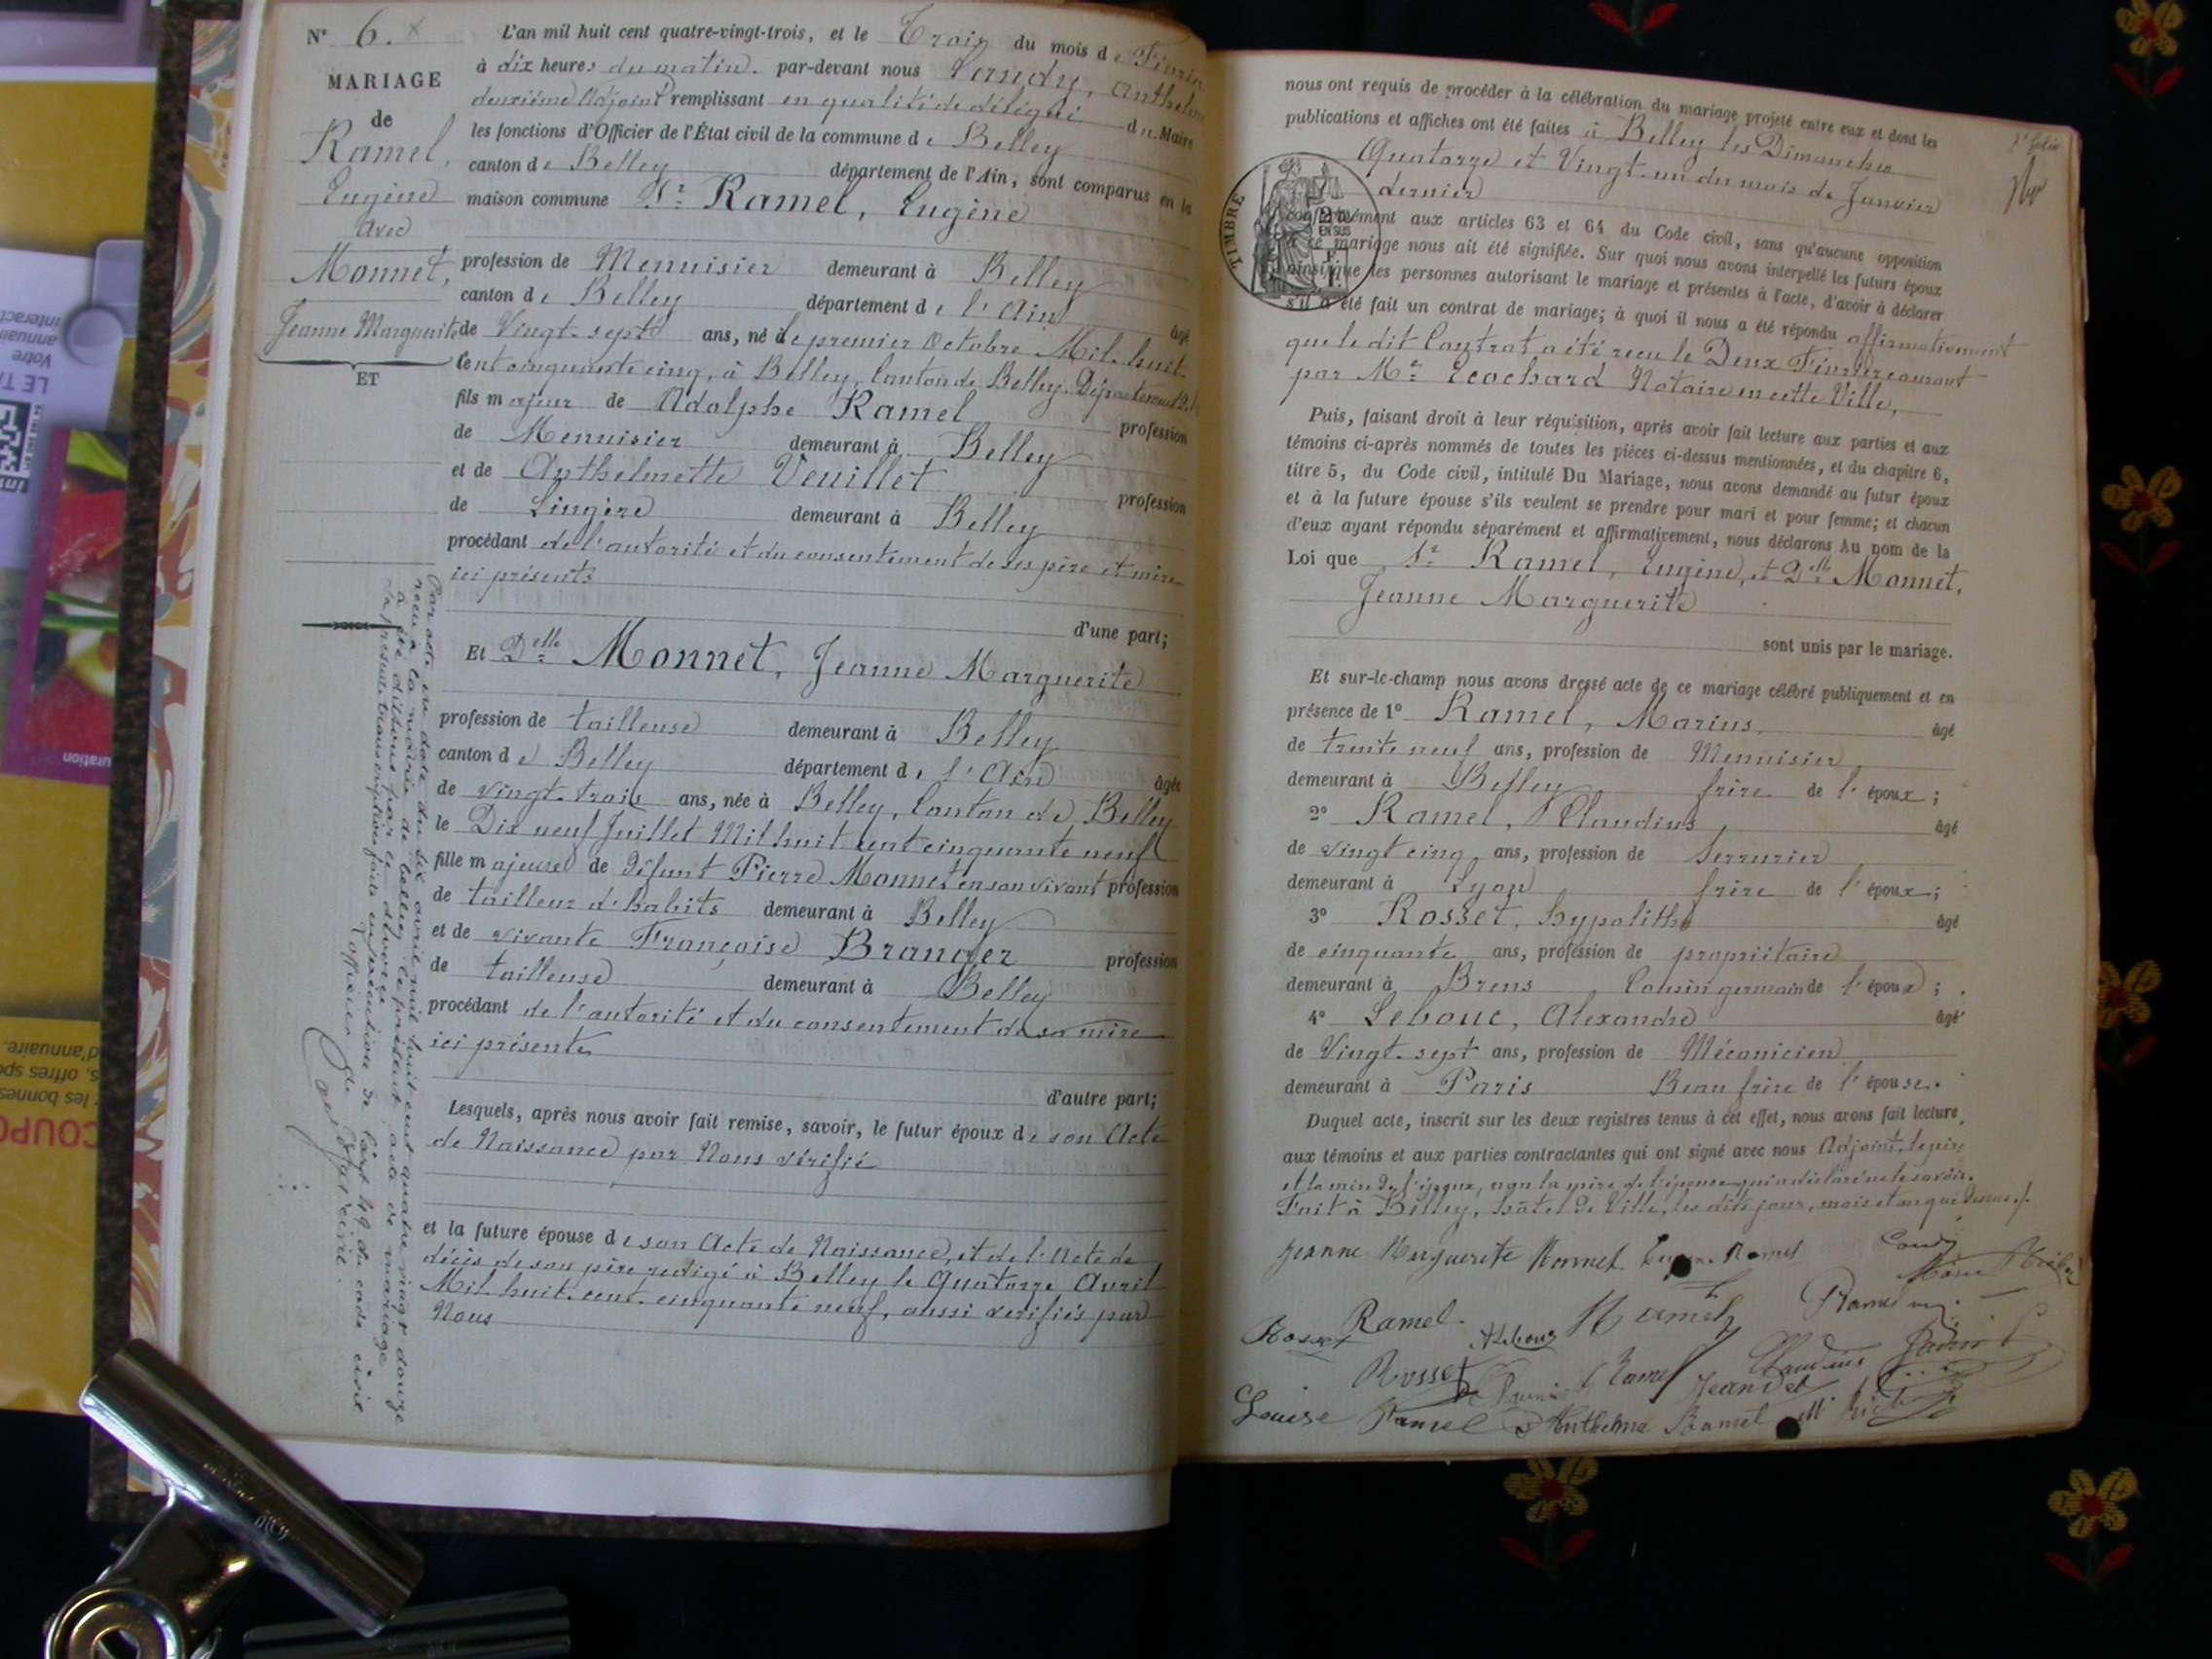 N° 6.
MARIAGE
de
Ramel,
Eugène
avec
Monnet,
Jeanne Marguerite
ET
L'an mil huit cent quatre-vingt-trois, et le Trois du mois de Février
à dix heures du matin. par-devant nous Anthelme
deuxième Adjoint remplissant en qualité de délégué du Maire
les fonctions d'Officier de l'État civil de la commune de Belley
canton de Belley département de l'Ain, sont comparus en la
maison commune Sr Ramel, Eugène
profession de Menuisier demeurant à Belley
canton de Belley département de l'Ain âgé
de Vingt-sept ans, né le premier Octobre Mil-huit-
Cent cinquante cinq, à Belley, Canton de Belley, Département
fils majeur de Adolphe Ramel profession
de Menuisier demeurant à Belley
et de Anthelmette Veuillet profession
de Lingère demeurant à Belley
procédant de l'autorité et du consentement de ses père et mère
ici présents
d'une part;
Et Delle Monnet, Jeanne Marguerite
profession de tailleuse demeurant à Belley
canton de Belley département de l'Ain âgée
de vingt-trois ans, née à Belley, Canton de Belley
le Dix neuf Juillet Mil huit cent cinquante neuf
fille majeure de Défunt Pierre Monnet en son vivant profession
de tailleur d'habits demeurant à Belley
et de vivante Françoise Branger profession
de tailleuse demeurant à Belley
procédant de l'autorité et du consentement de sa mère
ici présente
d'autre part;
Lesquels, après nous avoir fait remise, savoir, le futur époux de son Acte
de Naissance par Nous vérifié
et la future épouse de son Acte de Naissance, et de l'Acte de
décès de son père rédigé à Belley le Quatorze Avril
Mil-huit-cent-cinquante neuf, aussi vérifiés par
Nous
Par acte en date du six avril mil huit cent quatre vingt douze
reçu à la mairie de Belley le présent acte de mariage
a été dissous par le divorce
la présente transcription faite en exécution de l'art 49 du code civil
L'officier de l'état civil.
nous ont requis de procéder à la célébration du mariage projeté entre eux et dont les
publications et affiches ont été faites à Belley les Dimanches
Quatorze et Vingt-un du mois de Janvier
dernier
TIMBRE
conformément aux articles 63 et 64 du Code civil, sans qu'aucune opposition
à ce mariage nous ait été signifiée. Sur quoi nous avons interpellé les futurs époux
ainsi que les personnes autorisant le mariage et présentes à l'acte, d'avoir à déclarer
s'il a été fait un contrat de mariage; à quoi il nous a été répondu affirmativement
que le dit Contrat a été reçu le Deux Février courant
par Me Ecochard Notaire en cette Ville,
Puis, faisant droit à leur réquisition, après avoir fait lecture aux parties et aux
témoins ci-après nommés de toutes les pièces ci-dessus mentionnées, et du chapitre 6,
titre 5, du Code civil, intitulé Du Mariage, nous avons demandé au futur époux
et à la future épouse s'ils veulent se prendre pour mari et pour femme; et chacun
d'eux ayant répondu séparément et affirmativement, nous déclarons Au nom de la
Loi que Sr Ramel, Eugène, et Delle Monnet,
Jeanne Marguerite
sont unis par le mariage.
Et sur-le-champ nous avons dressé acte de ce mariage célébré publiquement et en
présence de 1° Ramel, Marius âgé
de trente neuf ans, profession de Menuisier
demeurant à Belley frère de l'époux;
2° Ramel, Claudius âgé
de vingt cinq ans, profession de Serrurier
demeurant à Lyon frère de l'époux;
3° Rosset, hypolithe âgé
de cinquante ans, profession de propriétaire
demeurant à Brens, Cousin germain de l'époux;
4° Lebouc, Alexandre âgé
de Vingt-sept ans, profession de Mécanicien
demeurant à Paris Beau frère de l'épouse.
Duquel acte, inscrit sur les deux registres tenus à cet effet, nous avons fait lecture
aux témoins et aux parties contractantes qui ont signé avec nous Adjoint, le père
et la mère de l'époux, non la mère de l'épouse qui a déclaré ne le savoir.
Fait à Belley, hôtel de Ville, les dits jour, mois et an que dessus.
Jeanne Marguerite Monnet Eugène Ramel
Rosset Ramel Alebouc Ramel
Rosset Ramel Claudius
Jeandet
Louise Ramel Anthelme Ramel